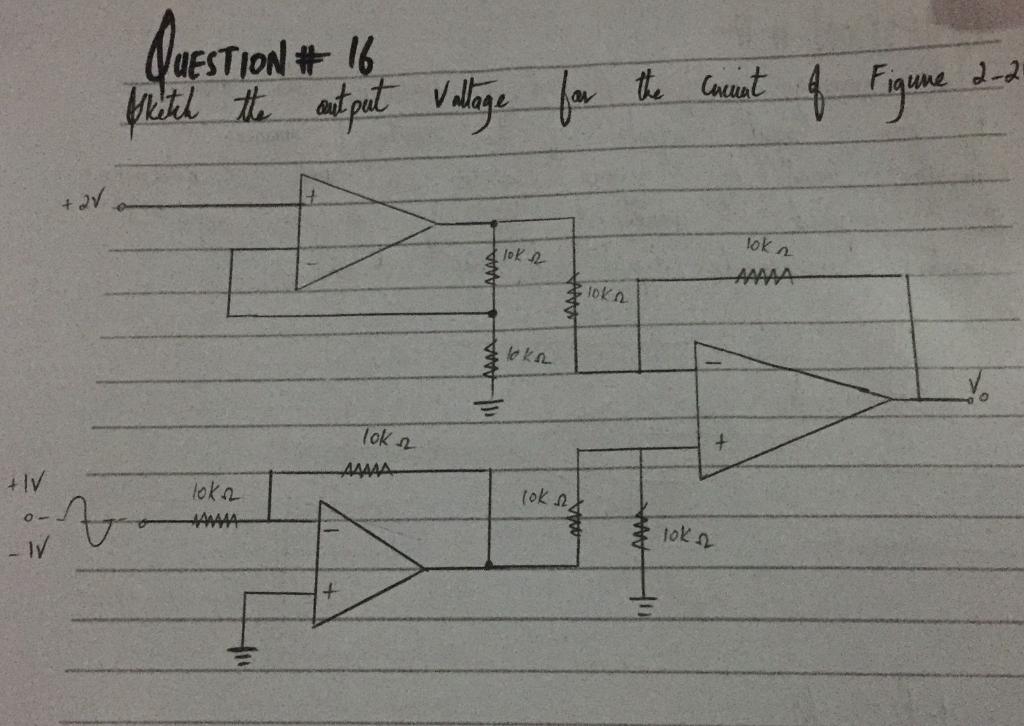 QUESTION # 16
Sketch the output Voltage for the Circuit of Figure 2-2
+2V
+
-
10KΩ
10KΩ
10KΩ
10KΩ
-
+
Vo
10KΩ
+1V
10KΩ
0-
-1V
-
+
10KΩ
10KΩ